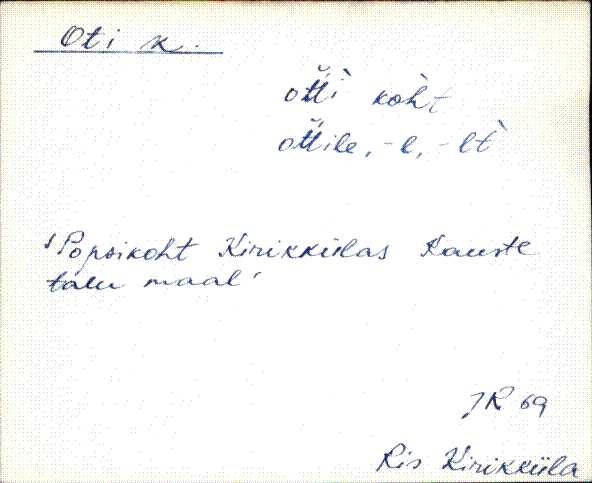 Oti k.
ot̆t̆ì kòht
ot̆t̆ile, -l, -lt̀
'Popsikoht Kirikkülas Kauste
talu maal'
JR 69
Ris Kirikküla